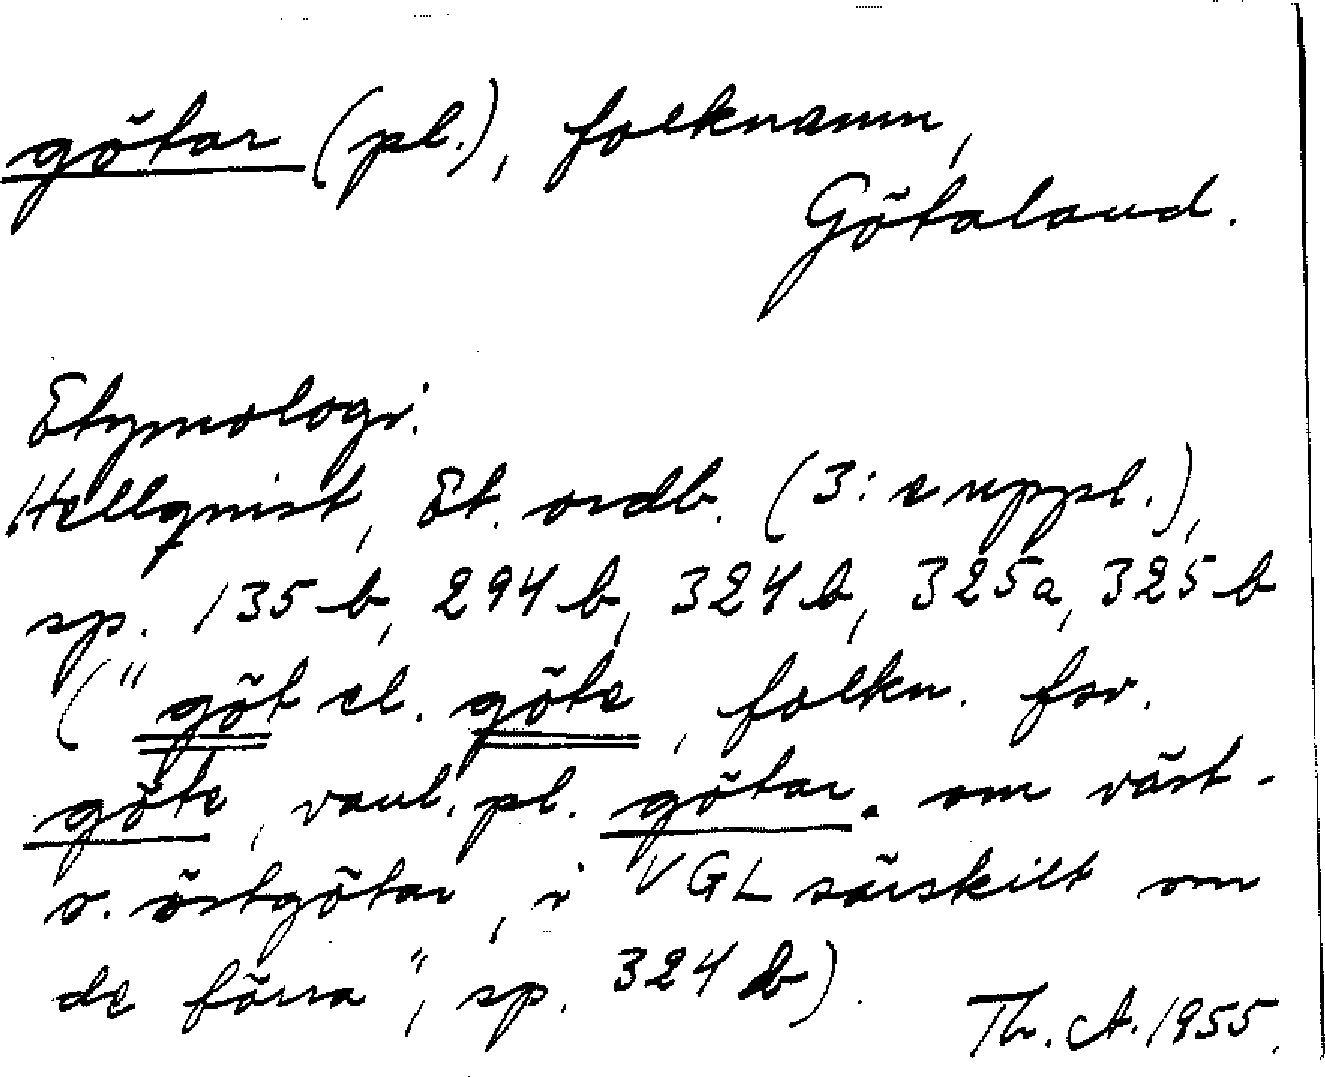 götar (pl.), folknamn,
Götaland.
Etymologi.
Hellquist, Et. ordb. (3: e uppl.),
sp. 135 b, 294 b, 324 b, 325 a, 325 b
("göt el. göte, folkn. fsv.
göte, vanl. pl. götar, om väst-
o. östgötar, i VGL särskilt om
de förra", sp. 324 b).
Th. A. 1955.